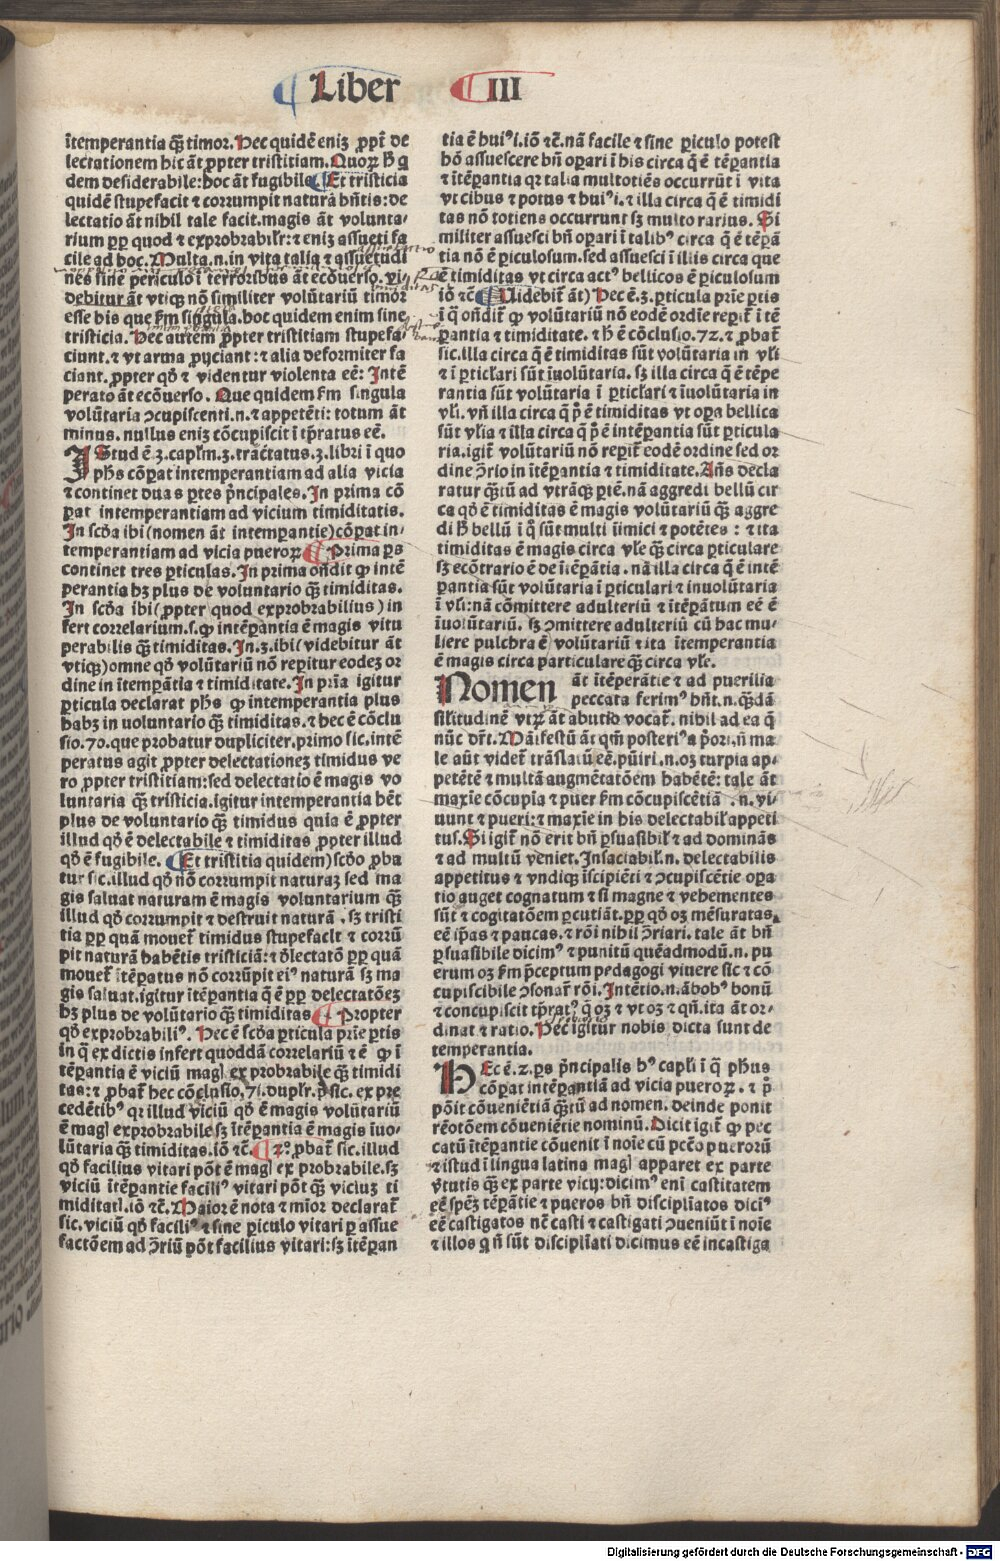 Liber III
ītemperantia ꝙ̄ timor. Hec quidē eniꝫ ꝓpṫ de
lectationem hic āt ꝓpter tristitiam. Quoꝝ ħ q
dem desiderabile: hoc āt fugibile. Et tristicia
quidē stupefacit ⁊ corrumpit naturā hn̄tis: de
lectatio āt nihil tale facit. magis āt volunta⸗
rium ꝓp quod ⁊ exprobrabilr̄: ⁊ eniꝫ assueti fa
cile ad hoc. Multa .n. in vita talia ⁊ assuetudi
nes sine periculo ī terroribus āt ecōuerso. vi
debitur āt vtiqꝫ nō similiter volūtariū timor
esse his que ẜm singula. hoc quidem enim sine
tristicia. Hec autem ꝓpter tristitiam stupefa⸗
ciunt. ⁊ vt arma ꝓijciant: ⁊ alia deformiter fa
ciant. ꝓpter qḋ ⁊ videntur violenta eē: Intē
perato āt ecōuerso. Que quidem ẜm singula
volūtaria ↄcupiscenti .n. ⁊ appetēti: totum āt
minus. nullus eniꝫ cōcupiscit ītꝑatus eē.
IStud ē .3. caplm̄ .3. tractatus .3. libri ī quo
ph̄s cōꝑat intemperantiam ad alia vicia
⁊ continet duas ꝑtes pͥncipales. In prima cō
ꝑat intemperantiam ad vicium timiditatis.
In scḋa ibi (nomen āt intemperantie) cōꝑat in⸗
temperantiam ad vicia pueroꝝ Prima ꝑs
continet tres ꝑticulas. In prima on̄dit ꝙ intē
perantia hꝫ plus de voluntario ꝙ̄ timiditas.
In scḋa ibi (ꝓpter quod exprobrabilius) in
fert correlarium .s. ꝙ intēꝑantia ē magis vitu
perabilis ꝙ̄ timiditas. In .3. ibi (videbitur āt
vtiqꝫ) omne qḋ volūtariū nō reꝑitur eodeꝫ or
dine in ītemꝑātia ⁊ timiditate. In prīa igitur
ꝑticula declarat ph̄s ꝙ intemperantia plus
habꝫ in uoluntario ꝙ̄ timiditas. ⁊ hec ē cōclu
sio .70. que probatur dupliciter. primo sic. intē
peratus agit ꝓpter delectationeꝫ timidus ve
ro ꝓpter tristitiam: sed delectatio ē magis vo
luntaria ꝙ̄ tristicia. igitur intemperantia hēt
plus de voluntario ꝙ̄ timidus quia ē ꝓpter
illud qḋ ē delectabile ⁊ timiditas ꝓpter illud
qḋ ē fugibile. Et tristitia quidem) scḋo ꝓba
tur sic. illud qḋ nō corrumpit naturaꝫ sed ma
gis saluat naturam ē magis voluntarium ꝙ̄
illud qḋ corrumpit ⁊ destruit naturā. sꝫ tristi
tia ꝓp quā mouet̄ timidus stupefacit ⁊ corrū
pit naturā habētis tristiciā: ⁊ dlectatō ꝓp quā
mouet̄ ītēꝑatus nō corrūpit eiꝰ naturā sꝫ ma
gis saluat. igitur ītēꝑantia q̄ ē ꝓp delectatōeꝫ
hꝫ plus de volūtario ꝙ̄ timiditas Propter
qḋ exprobrabiliꝰ. Hec ē scḋa ꝑticula prīe ꝑtis
in q̄ ex dictis infert quoddā correlariū ⁊ ē ꝙ ī
tēꝑantia ē viciū magꝭ exprobrabile ꝙ̄ timidi
tas: ⁊ ꝓbat̄ hec cōclusio, 71. duplr̄. pͦ sic. ex pre
cedētibꝰ qꝛ illud viciū qḋ ē magis volūtariū
ē magꝭ exprobrabile sꝫ ītēꝑantia ē magis īuo⸗
lūtaria ꝙ̄ timiditas. iō ⁊č. 2º. ꝓbat̄ sic. illud
qḋ facilius vitari pōt ē magꝭ exprobrabile. sꝫ
viciū ītēꝑantie faciliꝰ vitari pōt ꝙ̄ viciuꝫ ti
miditatꝭ. iō ⁊č. Maior ē nota ⁊ mīor declarat̄
sic. viciū qḋ faciliꝰ ⁊ sine ꝑiculo vitari ꝑ assue
factōem ad ↄ̄riū pōt facilius vitari: sꝫ ītēꝑan
tia ē huiꝰi. iō ⁊č. nā facile ⁊ sine ꝑiculo potest
hō assuescere bn̄ oꝑari ī his circa q̄ ē tēꝑantia
⁊ ītēꝑantia qꝛ talia multotiēs occurrūt ī vita
vt cibus ⁊ potus ⁊ huiꝰi. ⁊ illa circa q̄ ē timidi
tas nō totiens occurrunt sꝫ multo rarius. Si
militer assuesci bn̄ oꝑari ī talibꝰ circa q̄ ē tēꝑā
tia nō ē ꝑiculosum. sed assuesci ī illis circa que
ē timiditas vt circa actꝰ bellicos ē ꝑiculosum
iō ⁊č Uidebit̄ āt) Hec ē .3. ꝑticula prīe ꝑtis
ī q̄ on̄dit̄ ꝙ voluntariū nō eodē ordīe reꝑit̄ ī tē
ꝑantia ⁊ timiditate. ⁊ ħ ē cōclusio .72. ⁊ ꝓbat̄
sic. illa circa q̄ ē timiditas sūt volūtaria in vl̄i
⁊ ī ꝑticl̄ari sūt īuolūtaria. sꝫ illa circa q̄ ē tēpe
rantia sūt volūtaria ī ꝑticl̄ari ⁊ īuolūtaria in
vl̄i. vn̄ illa circa q̄ pͦ ē timiditas vt oꝑa bellica
sūt vl̄ia ⁊ illa circa q̄ pͦ ē intēꝑantia sūt ꝑticula
ria. igit̄ volūtariū nō reꝑit̄ eodē ordine sed or
dine ↄ̄rio in ītēꝑantia ⁊ timiditate. An̄s decla
ratur ꝙ̄tū ad vtrāqꝫ ꝑtē. nā aggredi bellū cir
ca qḋ ē timiditas ē magis volūtariū ꝙ̄ aggre
di ħ bellū ī q̊ sūt multi iimici ⁊ potētes: ⁊ ita
timiditas ē magis circa vl̄e ꝙ̄ circa ꝑticulare
sꝫ ecōtrario ē de ītēꝑātia. nā illa circa q̄ ē intē
ꝑantia sūt volūtaria ī ꝑticulari ⁊ inuolūtaria
ī vl̄i: nā cōmittere adulteriū ⁊ ītēꝑātum eē ē
īuolūtariū. sꝫ ↄmittere adulteriū cū hac mu⸗
liere pulchra ē volūtariū ⁊ ita ītemperantia
ē magis circa particulare ꝙ̄ circa vl̄e.
Nomen āt ītēꝑātie ⁊ ad puerilia
peccata ferimꝰ hn̄t .n. ꝙ̄dā
sil̄itudinē vtꝝ āt abutio vocat̄. nihil ad ea q̄
nūc dr̄t. Māifestū āt qm̄ posteriꝰ a pͥori. n̄ ma
le aūt videt̄ trāslatū eē. pūiri .n. oꝫ turpia ap⸗
petētē ⁊ multā augmētatōem habētē: tale āt
maxīe cōcupīa ⁊ puer ẜm cōcupiscētiā .n. vi⸗
uunt ⁊ pueri: ⁊ maxīe in his delectabil̄ appeti
tus. Si igit̄ nō erit bn̄ ꝑsuasibil̄ ⁊ ad dominās
⁊ ad multū veniet. Insaciabil̄ .n. delectabilis
appetitus ⁊ vndiqꝫ īscipiēti ⁊ ↄcupiscētie oꝑa
tio auget cognatum ⁊ si magne ⁊ vehementes
sūt ⁊ cogitatōem ꝑcutiāt. ꝓp qḋ oꝫ mēsuratas
eē ip̄as ⁊ paucas. ⁊ rōi nihil ↄ̄riari. tale āt bn̄
ꝑsuasibile dicimꝰ ⁊ punitū quēadmodū .n. pu
erum oꝫ ẜm pͣceptum pedagogi viuere sic ⁊ cō
cupiscibile ↄsonar̄ rōi. Intētio .n. ābobꝰ bonū
⁊ concupiscit tꝑatꝰ q̄ oꝫ ⁊ vt oꝫ ⁊ qn̄. ita āt or⸗
dinat ⁊ ratio. Hec igitur nobis dicta sunt de
temperantia.
HEc ē .2. ꝑs pͥncipalis hꝰ capl̄i ī q̄ ph̄us
cōꝑat intēꝑantiā ad vicia pueroꝝ. ⁊ pͦ
pōit cōueniētiā ꝙ̄tū ad nomen. deinde ponit
rēotōem cōueniētie nominū. Dicit igit̄ ꝙ pec
catū ītēꝑantie cōuenit ī noīe cū pctō pueroꝝ
⁊ istud ī lingua latina magꝭ apparet ex parte
vͥtutis ꝙ̄ ex parte vicij: dicimꝰ enī castitatem
eē speꝫ tēꝑātie ⁊ pueros bn̄ discipl̄iatos diciꝰ
eē castigatos nē casti ⁊ castigati ↄueniūt ī noīe
⁊ illos q̄ n̄ sūt discipl̄iati dicimus eē incastiga
Digitalisierung gefördert durch die Deutsche Forschungsgemeinschaft - DFG